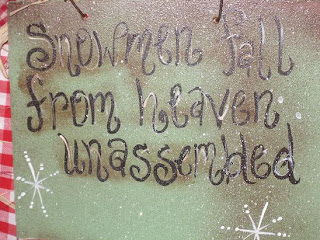 Snowmen fall
from heaven
unassembled